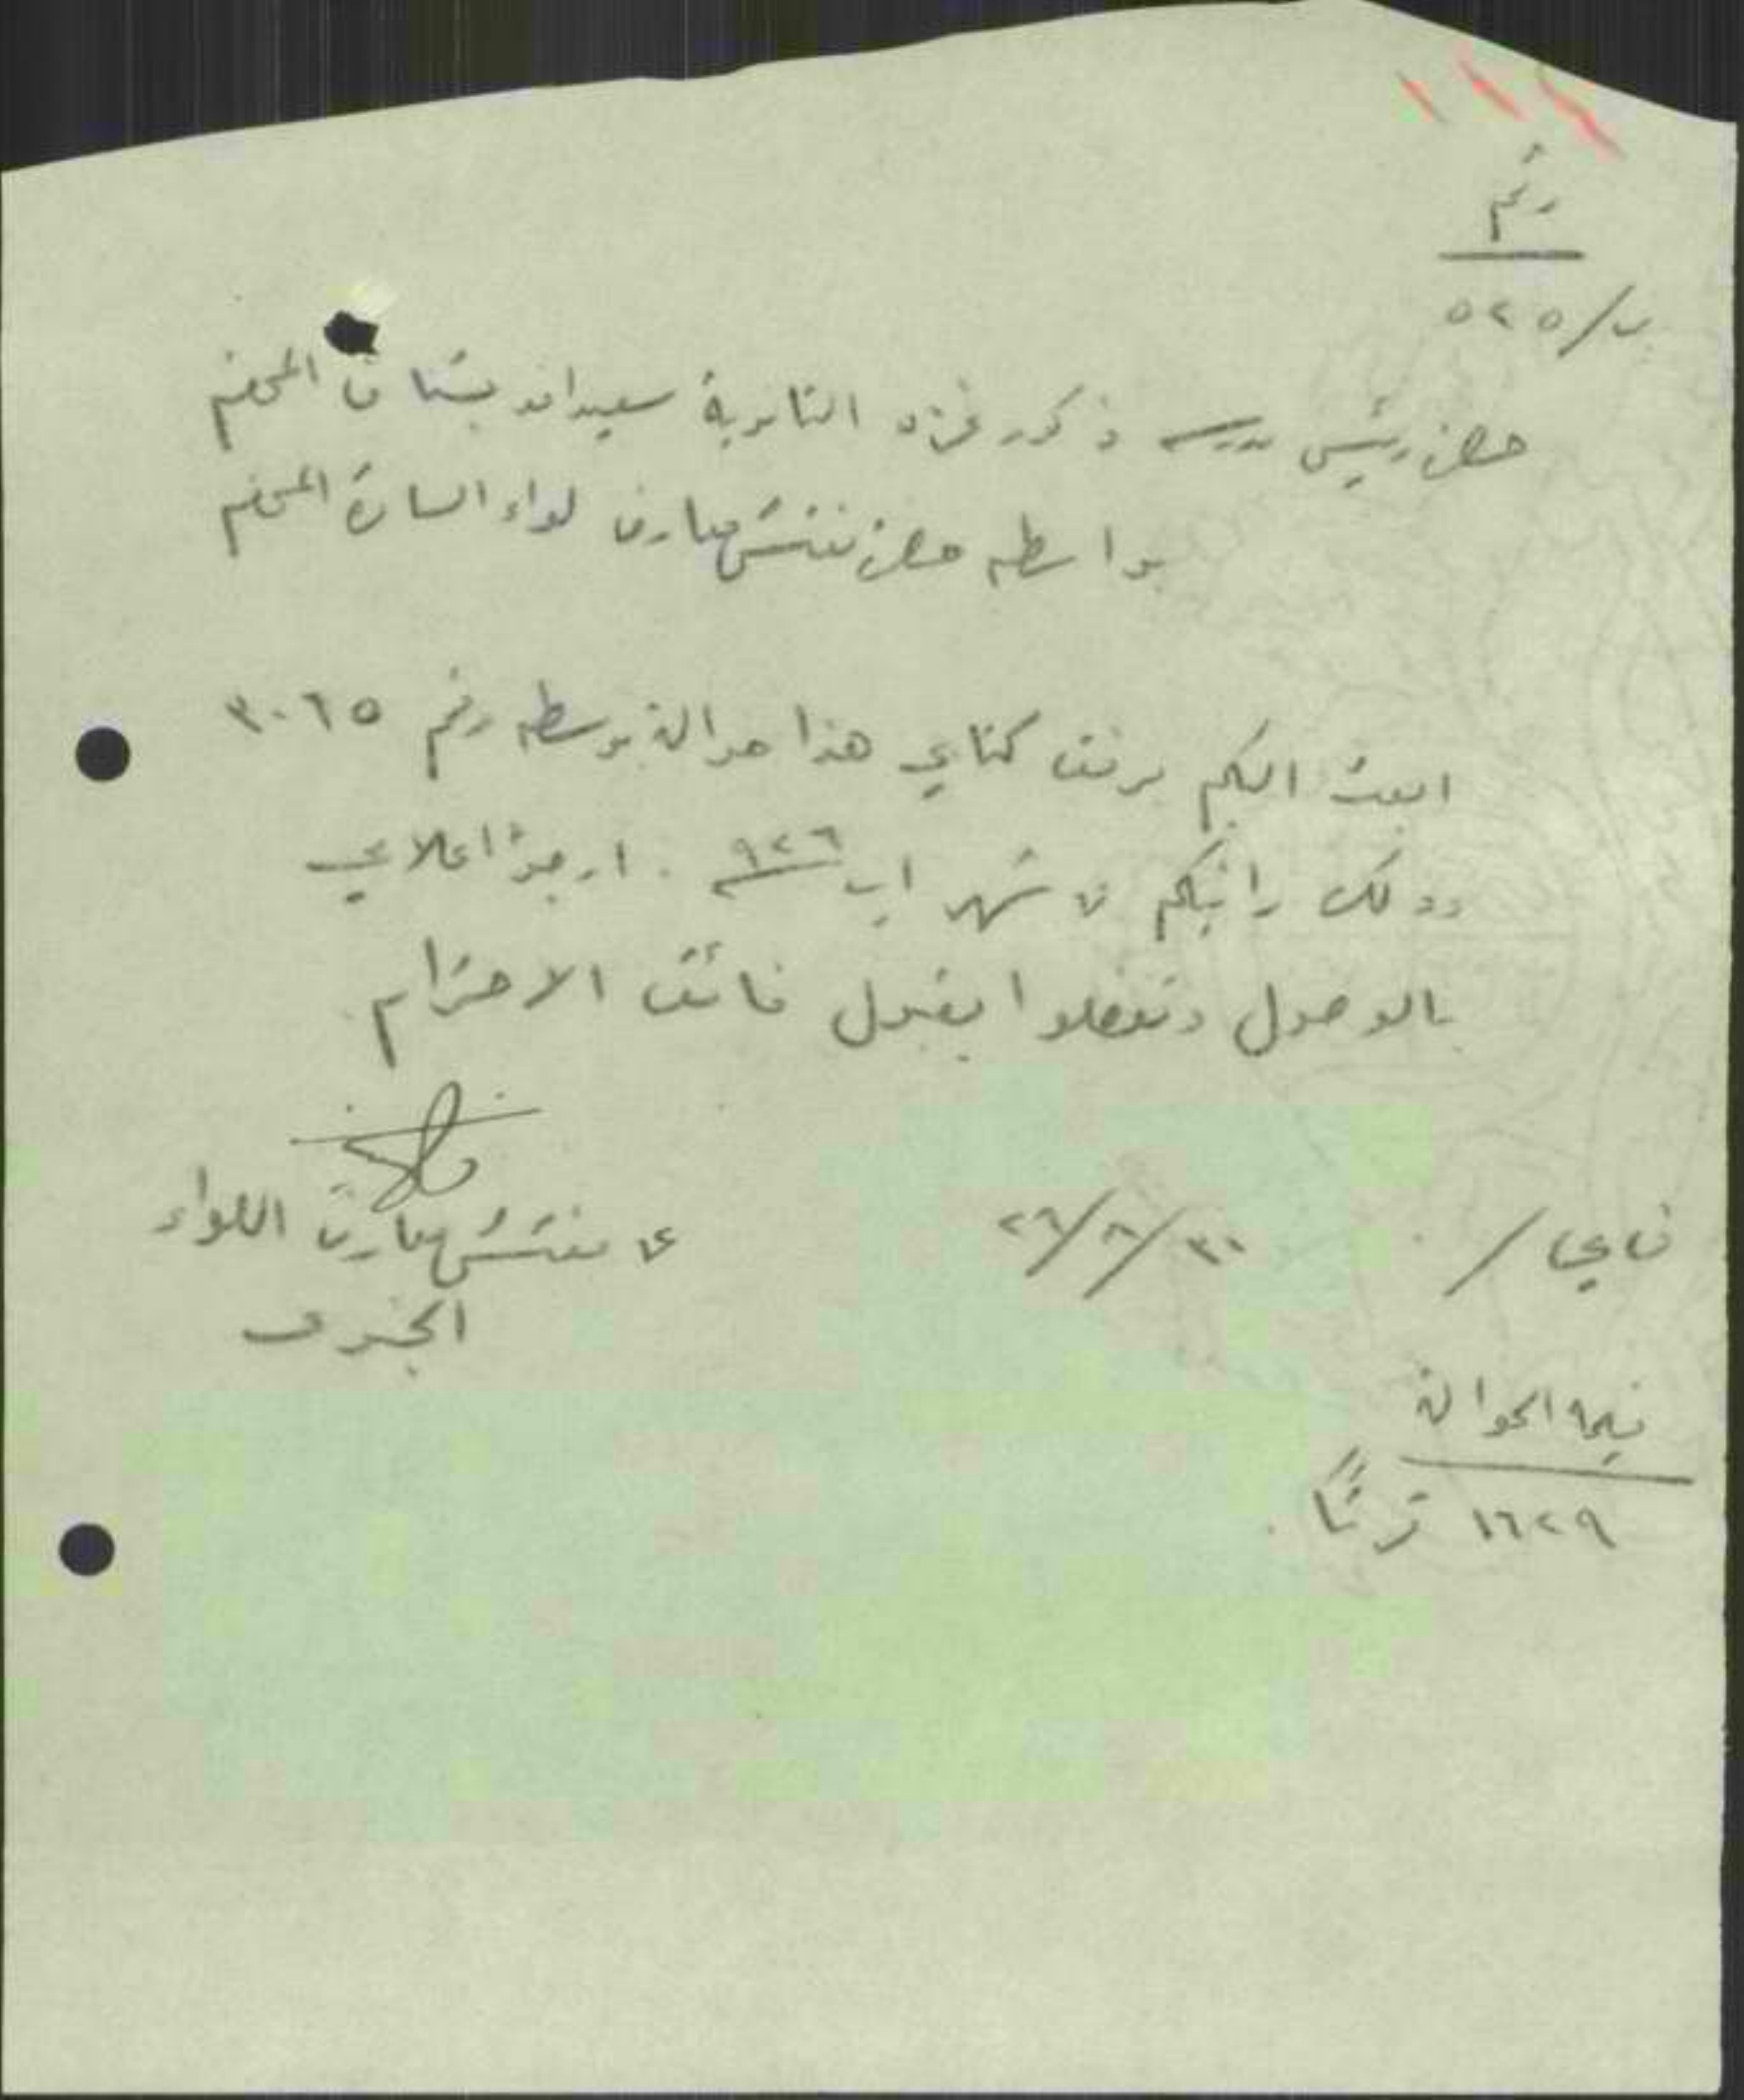 رقم
ب/٥٢٥
حضرة رئيس مدرسة ذكور غزة الثانوية سعيد افندي المحترم
بواسطة حضرة مفتش معارف لواء السامرة المحترم
ابعث اليكم برفق كتابي هذا حوالة بوسطه رقم ٣٠٦٥
وذلك راتبكم عن شهر اب ٩٢٦ . ارجو اعلامي
بالوصول وتفضلوا بقبول فائق الاحترام
٢٦/٨/٣١
ع مفتش معارف اللواء
الجنوبي
قيمة الحوالة
١٦٢٩ قرشًا